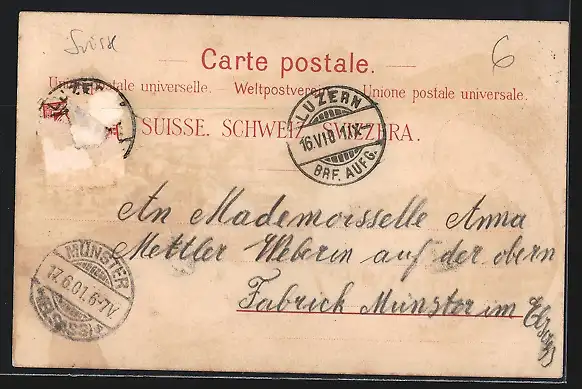 Suisse
6
Carte postale.
Union postale universelle. Weltpostverein. Unione postale universale.
SUISSE. SCHWEIZ. SVIZZERA.
LUZERN
BRF. AUFG.
An Mademoisselle Anna
Mettler Weberin auf der obern
Fabrick Münster im Elsass
MÜNSTER
17.6.01.6-7V
(ELSASS)